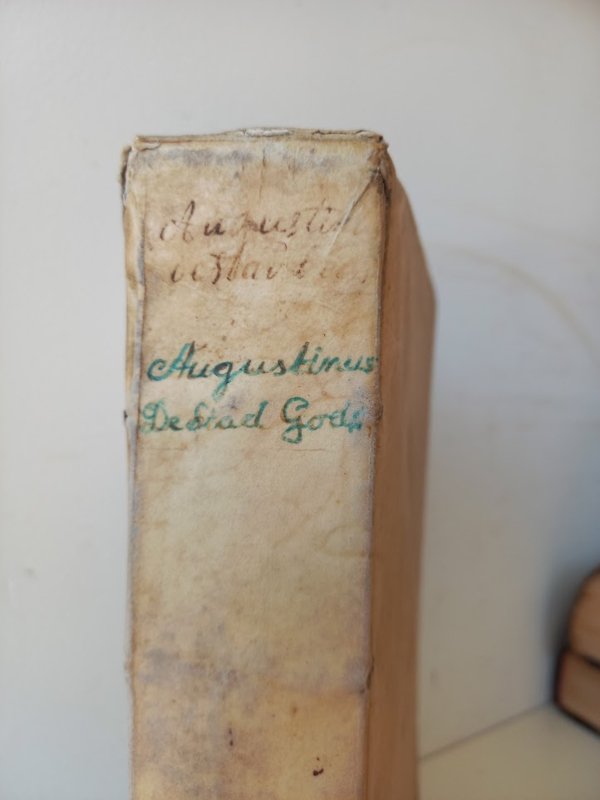 Augustin
Augustinus
De Stad Gods